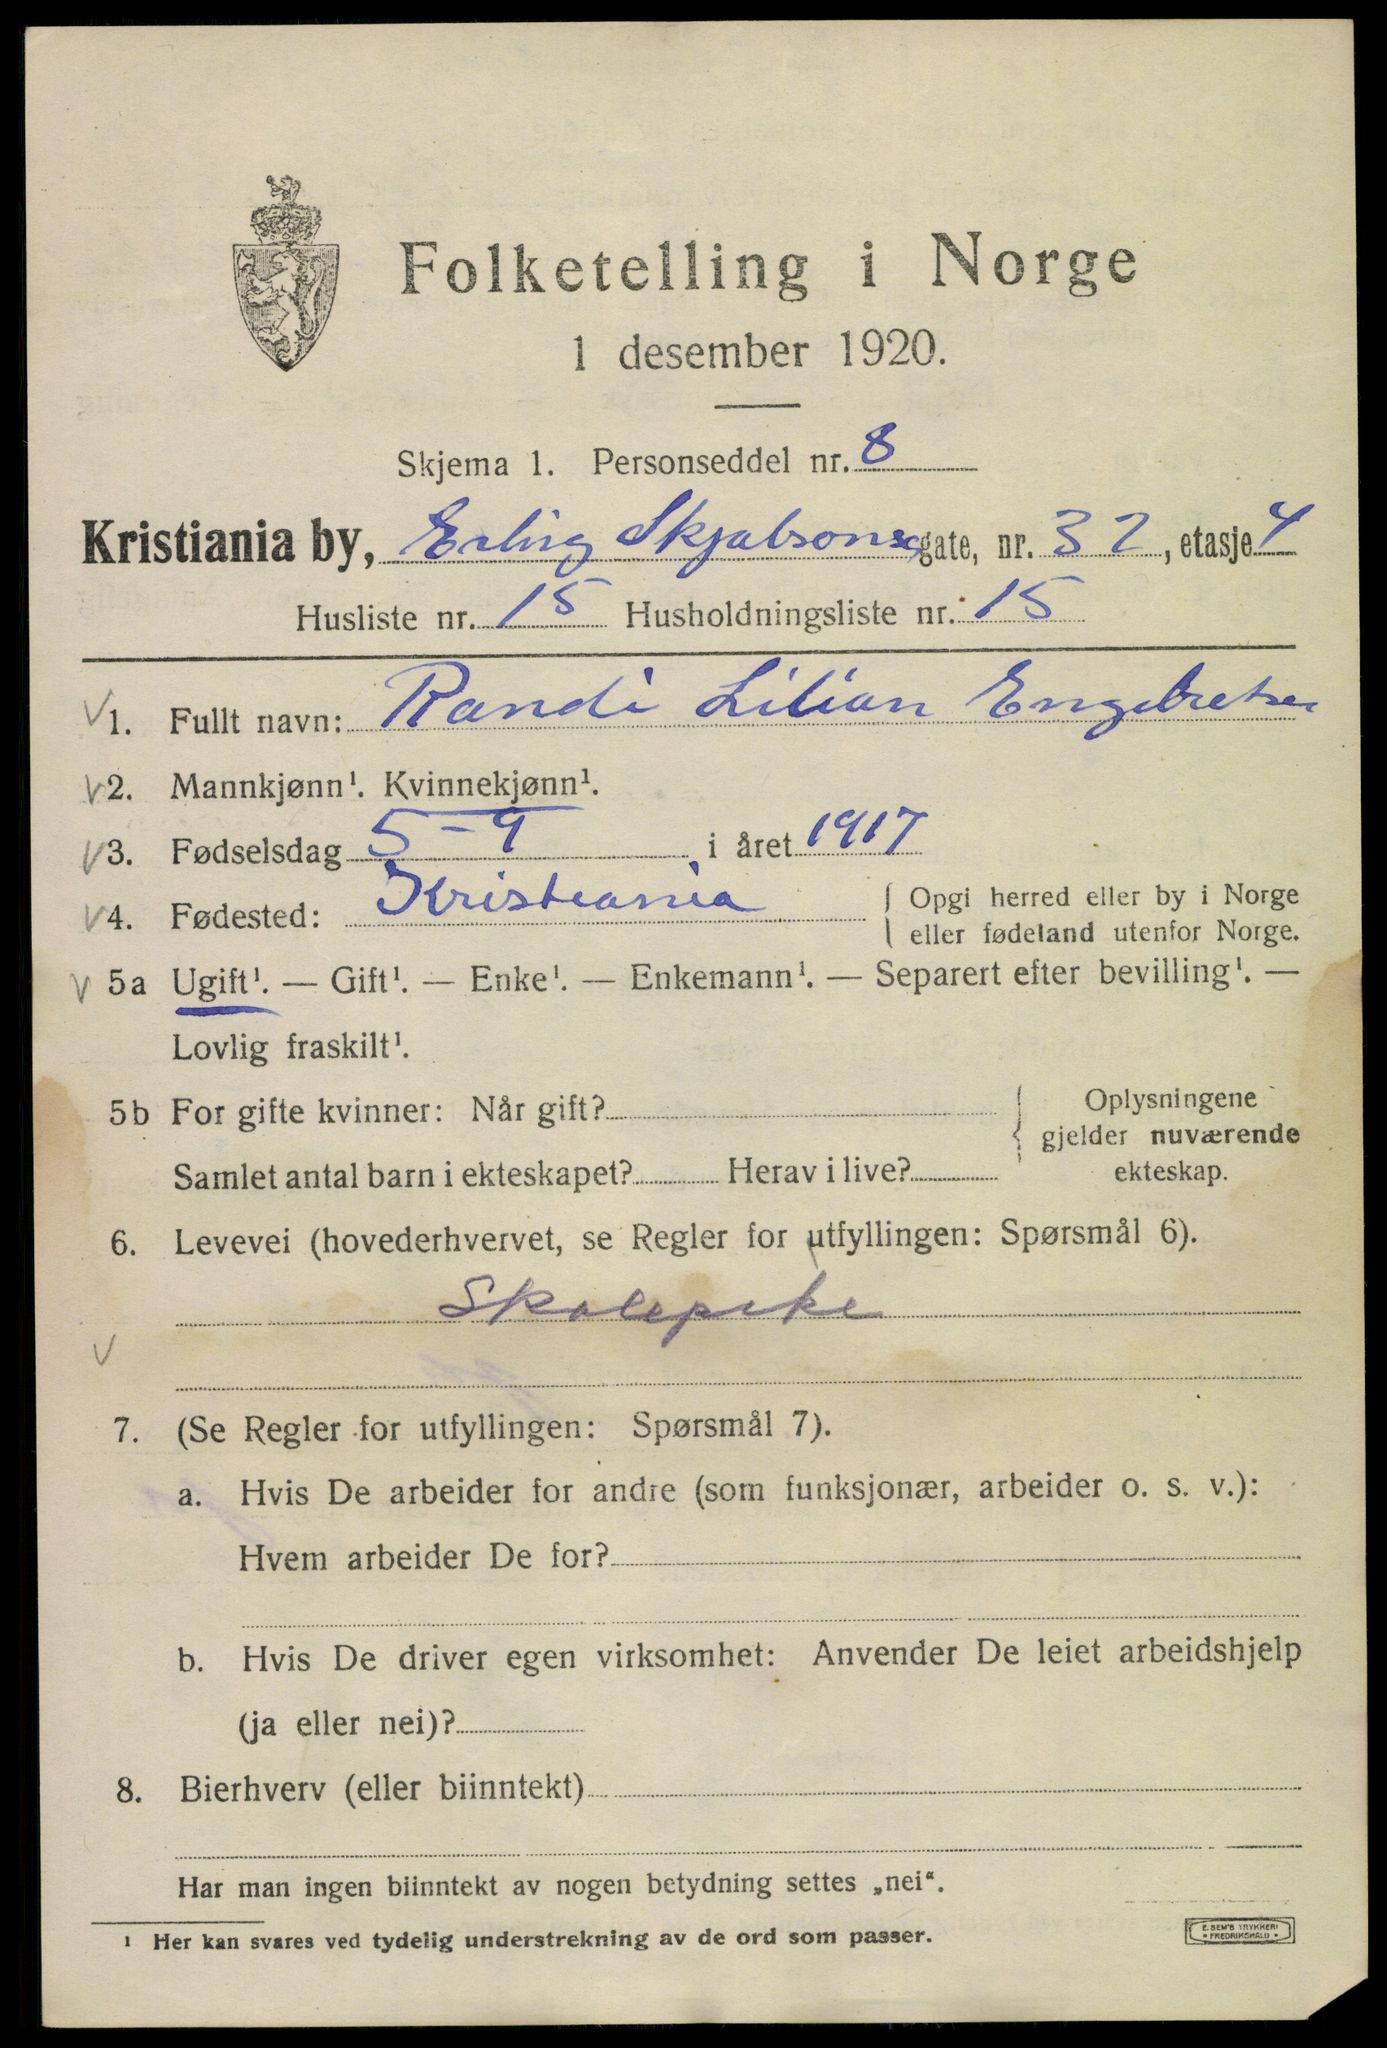 Folketelling i Norge
1 desember 1920.
Skjema 1. Personseddel nr. 8
Kristiania by, Erling Skjalsons gate, nr. 32, etasje 4
Husliste nr. 15 Husholdningsliste nr. 15
1. Fullt navn: Randi Lilian Engebretsen
2. Mannkjønn¹. Kvinnekjønn¹.
3. Fødselsdag 5-9 i året 1917
4. Fødested: Kristiania { Opgi herred eller by i Norge
eller fødeland utenfor Norge.
5a Ugift¹. — Gift¹. — Enke¹. — Enkemann¹. — Separert efter bevilling¹. —
Lovlig fraskilt¹.
5b For gifte kvinner: Når gift?
Samlet antal barn i ekteskapet? Herav i live?
Oplysningene
gjelder nuværende
ekteskap.
6. Levevei (hovederhvervet, se Regler for utfyllingen: Spørsmål 6).
Skolepike
7. (Se Regler for utfyllingen: Spørsmål 7).
a. Hvis De arbeider for andre (som funksjonær, arbeider o. s. v.):
Hvem arbeider De for?
b. Hvis De driver egen virksomhet: Anvender De leiet arbeidshjelp
(ja eller nei)?
8. Bierhverv (eller biinntekt)
Har man ingen biinntekt av nogen betydning settes „nei“.
¹ Her kan svares ved tydelig understrekning av de ord som passer.
E. SEM'S TRYKKERI
FREDRIKSHALD